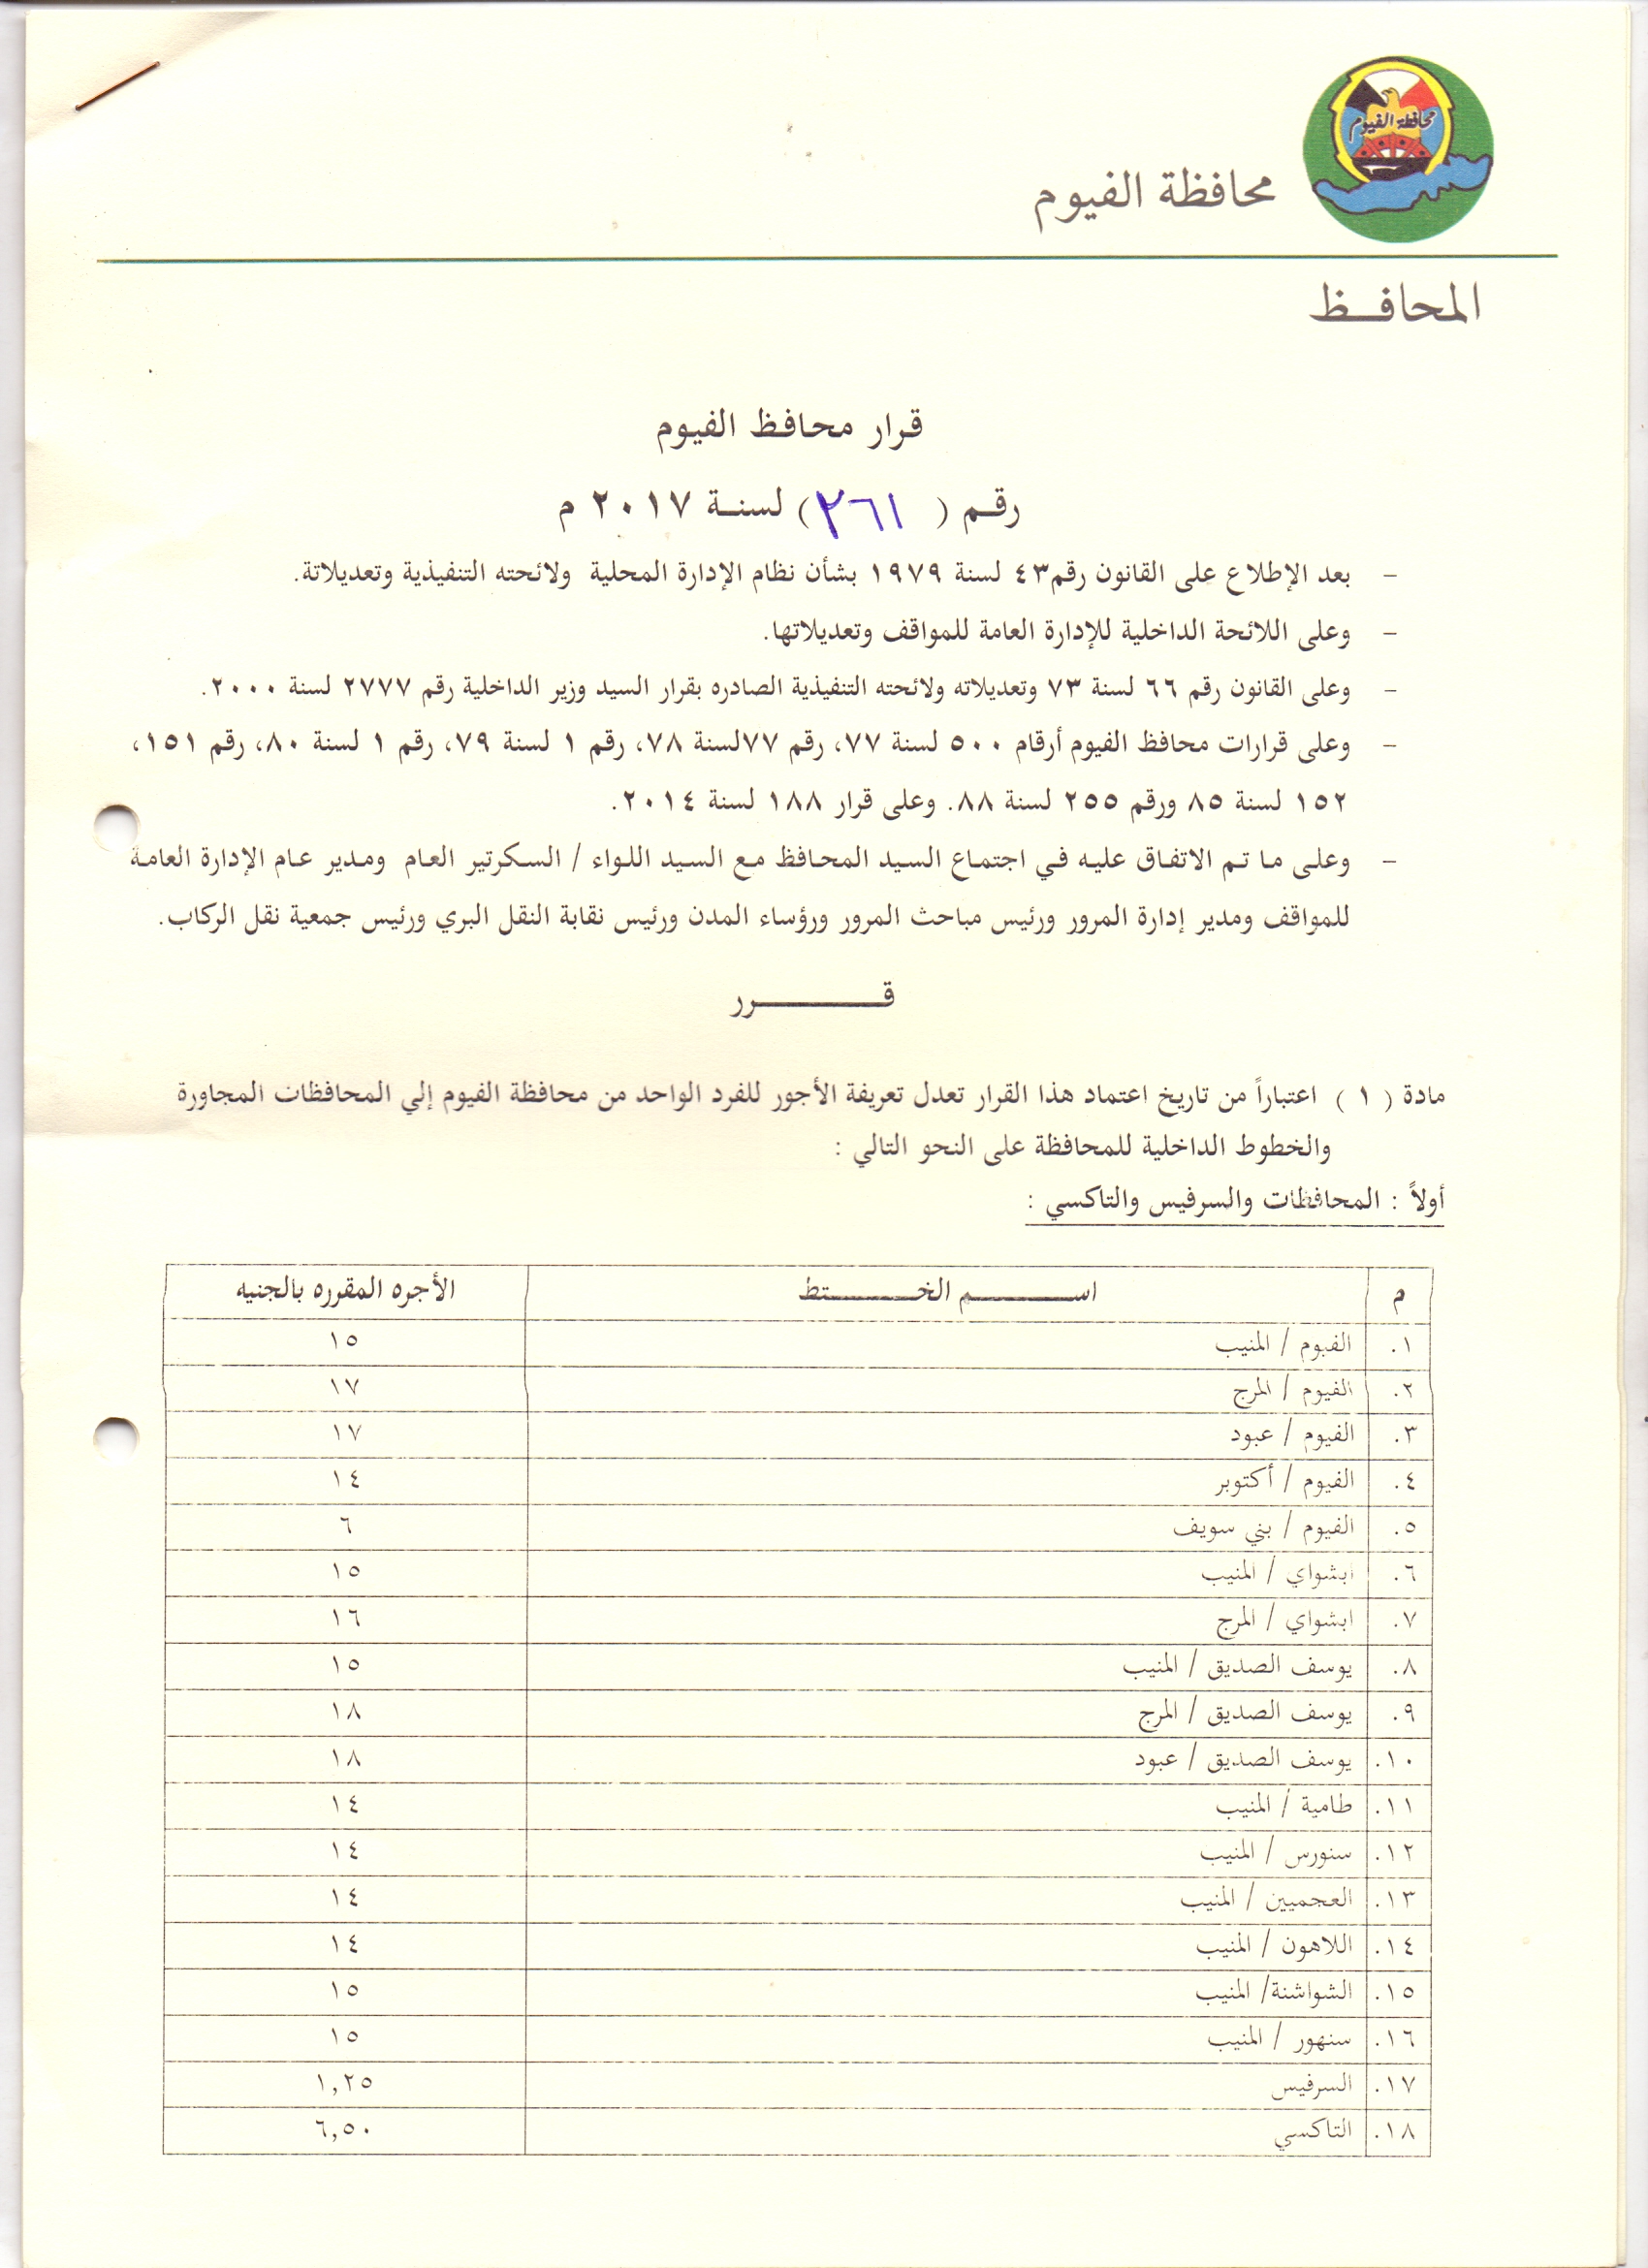 محافظة الفيوم
محافظة الفيوم
المحافـــظ
قرار محافظ الفيوم
رقم ( ٢٦١ ) لسنة ٢٠١٧ م
- بعد الإطلاع على القانون رقم٤٣ لسنة ١٩٧٩ بشأن نظام الإدارة المحلية ولائحته التنفيذية وتعديلاتة.
- وعلى اللائحة الداخلية للإدارة العامة للمواقف وتعديلاتها.
- وعلى القانون رقم ٦٦ لسنة ٧٣ وتعديلاته ولائحته التنفيذية الصادره بقرار السيد وزير الداخلية رقم ٢٧٧٧ لسنة ٢٠٠٠.
- وعلى قرارات محافظ الفيوم أرقام ٥٠٠ لسنة ٧٧، رقم ٧٧لسنة ٧٨، رقم ١ لسنة ٧٩، رقم ١ لسنة ٨٠، رقم ١٥١،
١٥٢ لسنة ٨٥ ورقم ٢٥٥ لسنة ٨٨. وعلى قرار ١٨٨ لسنة ٢٠١٤.
- وعلى ما تم الاتفاق عليه في اجتماع السيد المحافظ مع السيد اللواء / السكرتير العام ومدير عام الإدارة العامة
للمواقف ومدير إدارة المرور ورئيس مباحث المرور ورؤساء المدن ورئيس نقابة النقل البري ورئيس جمعية نقل الركاب.
قـــــــــرر
مادة ( ١ ) اعتباراً من تاريخ اعتماد هذا القرار تعدل تعريفة الأجور للفرد الواحد من محافظة الفيوم إلي المحافظات المجاورة
والخطوط الداخلية للمحافظة على النحو التالي :
أولاً : المحافظات والسرفيس والتاكسي :
م اســـــــم الخـــــــتط الأجره المقرره بالجنيه
١. الفيوم / المنيب ١٥
٢. الفيوم / المرج ١٧
٣. الفيوم / عبود ١٧
٤. الفيوم / أكتوبر ١٤
٥. الفيوم / بني سويف ٦
٦. ابشواي / المنيب ١٥
٧. ابشواي / المرج ١٦
٨. يوسف الصديق / المنيب ١٥
٩. يوسف الصديق / المرج ١٨
١٠. يوسف الصديق / عبود ١٨
١١. طامية / المنيب ١٤
١٢. سنورس / المنيب ١٤
١٣. العجميين / المنيب ١٤
١٤. اللاهون / المنيب ١٤
١٥. الشواشنة/ المنيب ١٥
١٦. سنهور / المنيب ١٥
١٧. السرفيس ١,٢٥
١٨. التاكسي ٦,٥٠